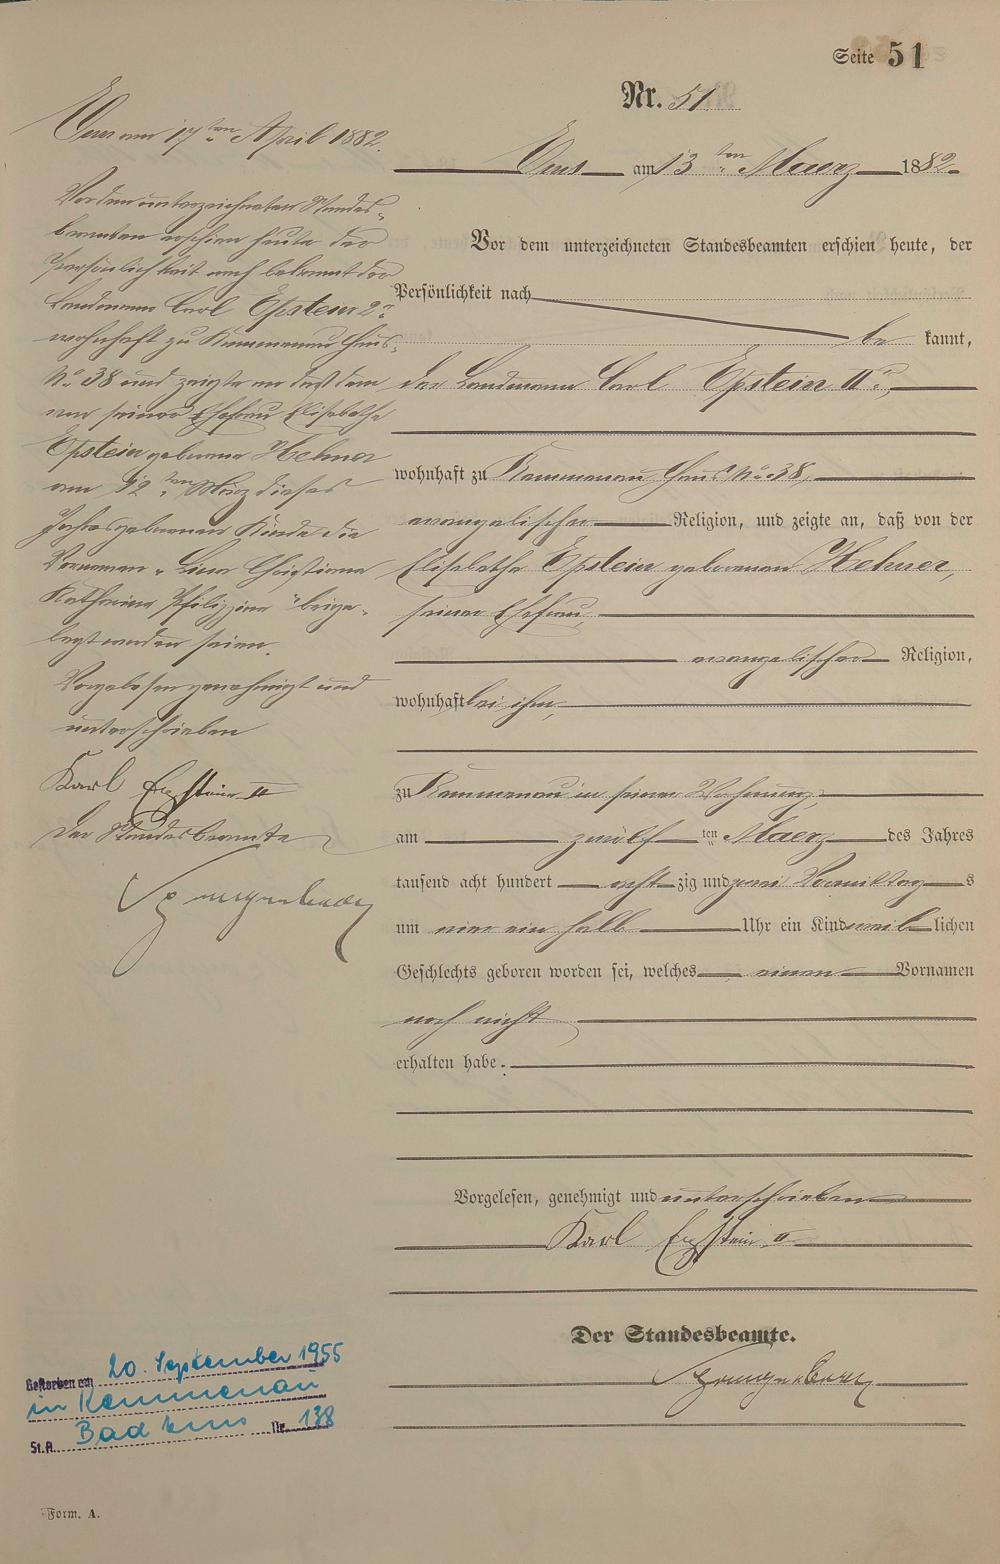 Seite 51
Nr. 51.
Ems am 13ten Maerz 1882
Vor dem unterzeichneten Standesbeamten erschien heute, der
Persönlichkeit nach
be kannt,
der Landmann Carl Epstein IIr,
wohnhaft zu Kemmenau Haus No 38,
evangelischer Religion, und zeigte an, daß von der
Elisabethe Epstein geborenen Hehner,
seiner Ehefrau,
evangelischer Religion,
wohnhaft bei ihm,
zu Kemmenau in seiner Wohnung,
am zwölf ten Maerz des Jahres
tausend acht hundert acht zig und zwei Vormittag s
um vier ein halb Uhr ein Kind weib lichen
Geschlechts geboren worden sei, welches einen Vornamen
noch nicht
erhalten habe.
Vorgelesen, genehmigt und unterschrieben
Karl Epstein II
Der Standesbeamte.
Ems am 17ten April 1882.
Vor dem unterzeichneten Standes-
beamten erschien heute der
Persönlichkeit nach bekannt der
Landmann Carl Epstein 2r
wohnhaft zu Kemmenau Haus-
No 38 und zeigte an daß dem
von seiner Ehefrau Elisabethe
Epstein geborene Hehner
am 12ten März dieses
Jahres geborenen Kinde die
Vornamen „Lina Christiana
Katharina Philippina" beige-
legt worden seien.
Vorgelesen genehmigt und
unterschrieben
Karl Epstein II
Der Standesbeamte
Gestorben am 20. September 1955
in Kemmenau
St.A. Bad Ems Nr. 138
Form. A.